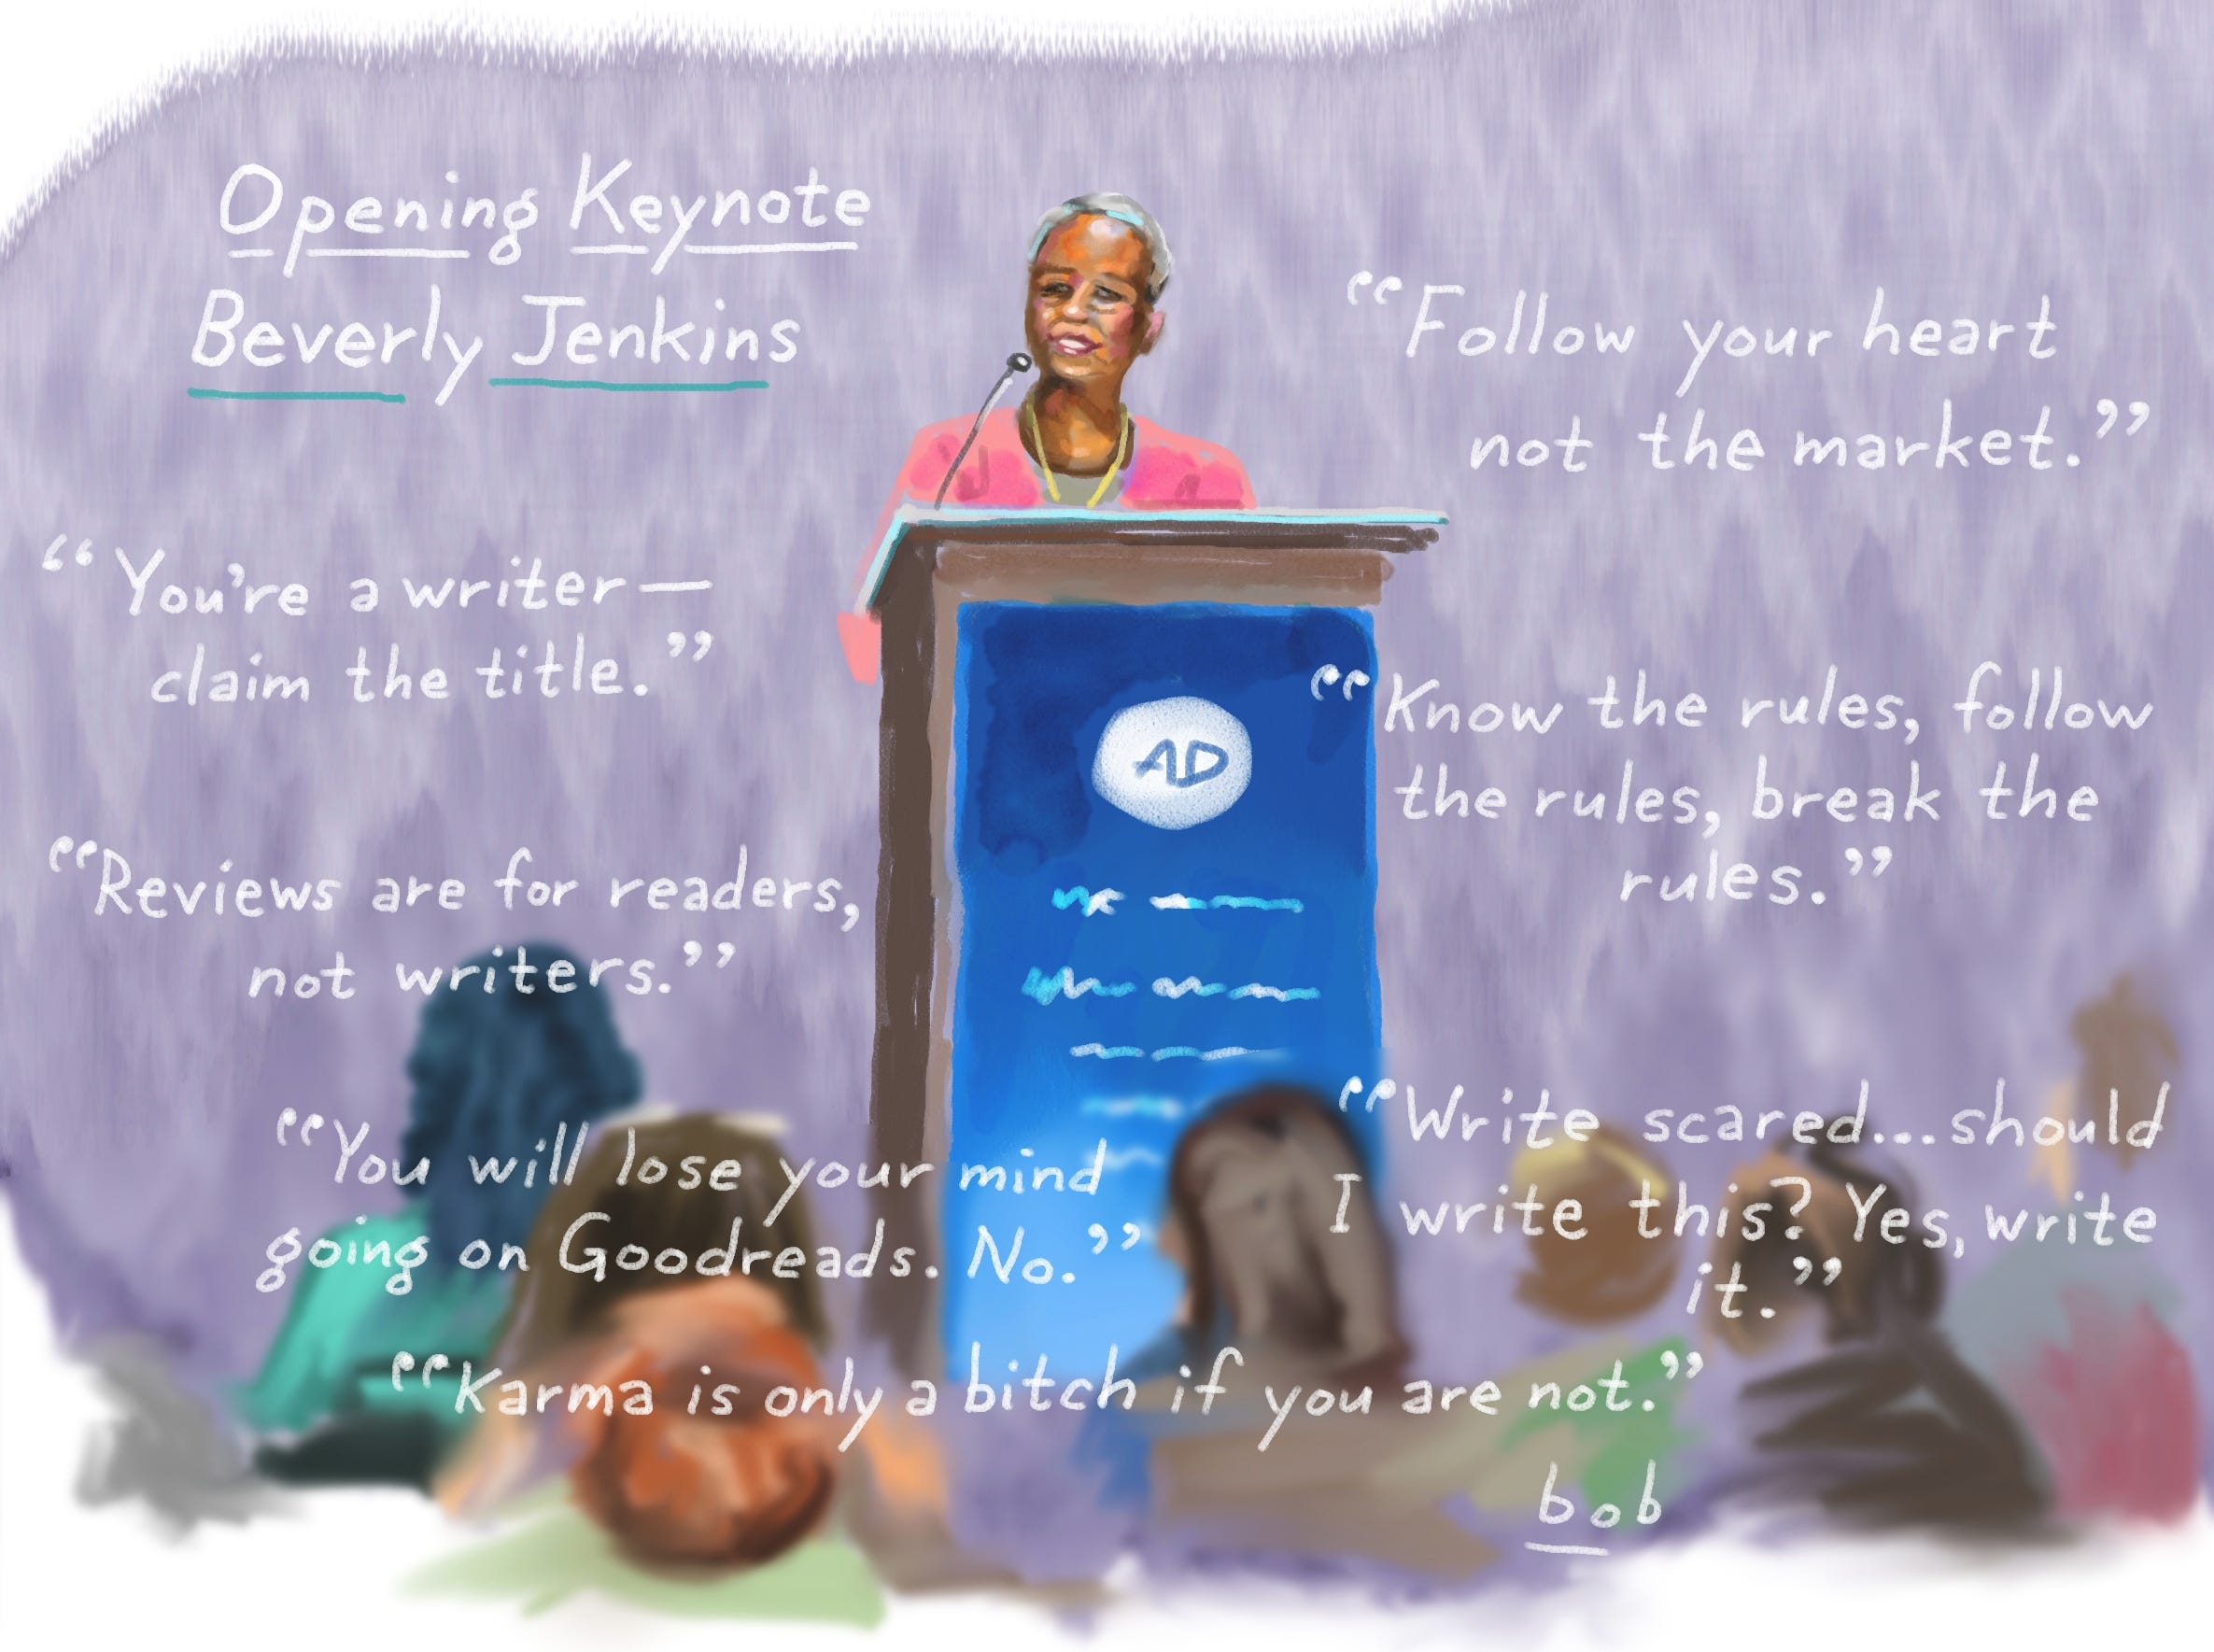 Opening Keynote
Beverly Jenkins
“You're a writer—
claim the title.”
“Reviews are for readers,
not writers.”
“You will lose your mind
going on Goodreads. No.”
“Follow your heart
not the market.”
“Know the rules, follow
the rules, break the
rules.”
“Write scared...should
I write this? Yes, write
it.”
“Karma is only a bitch if you are not.”
AD
bob